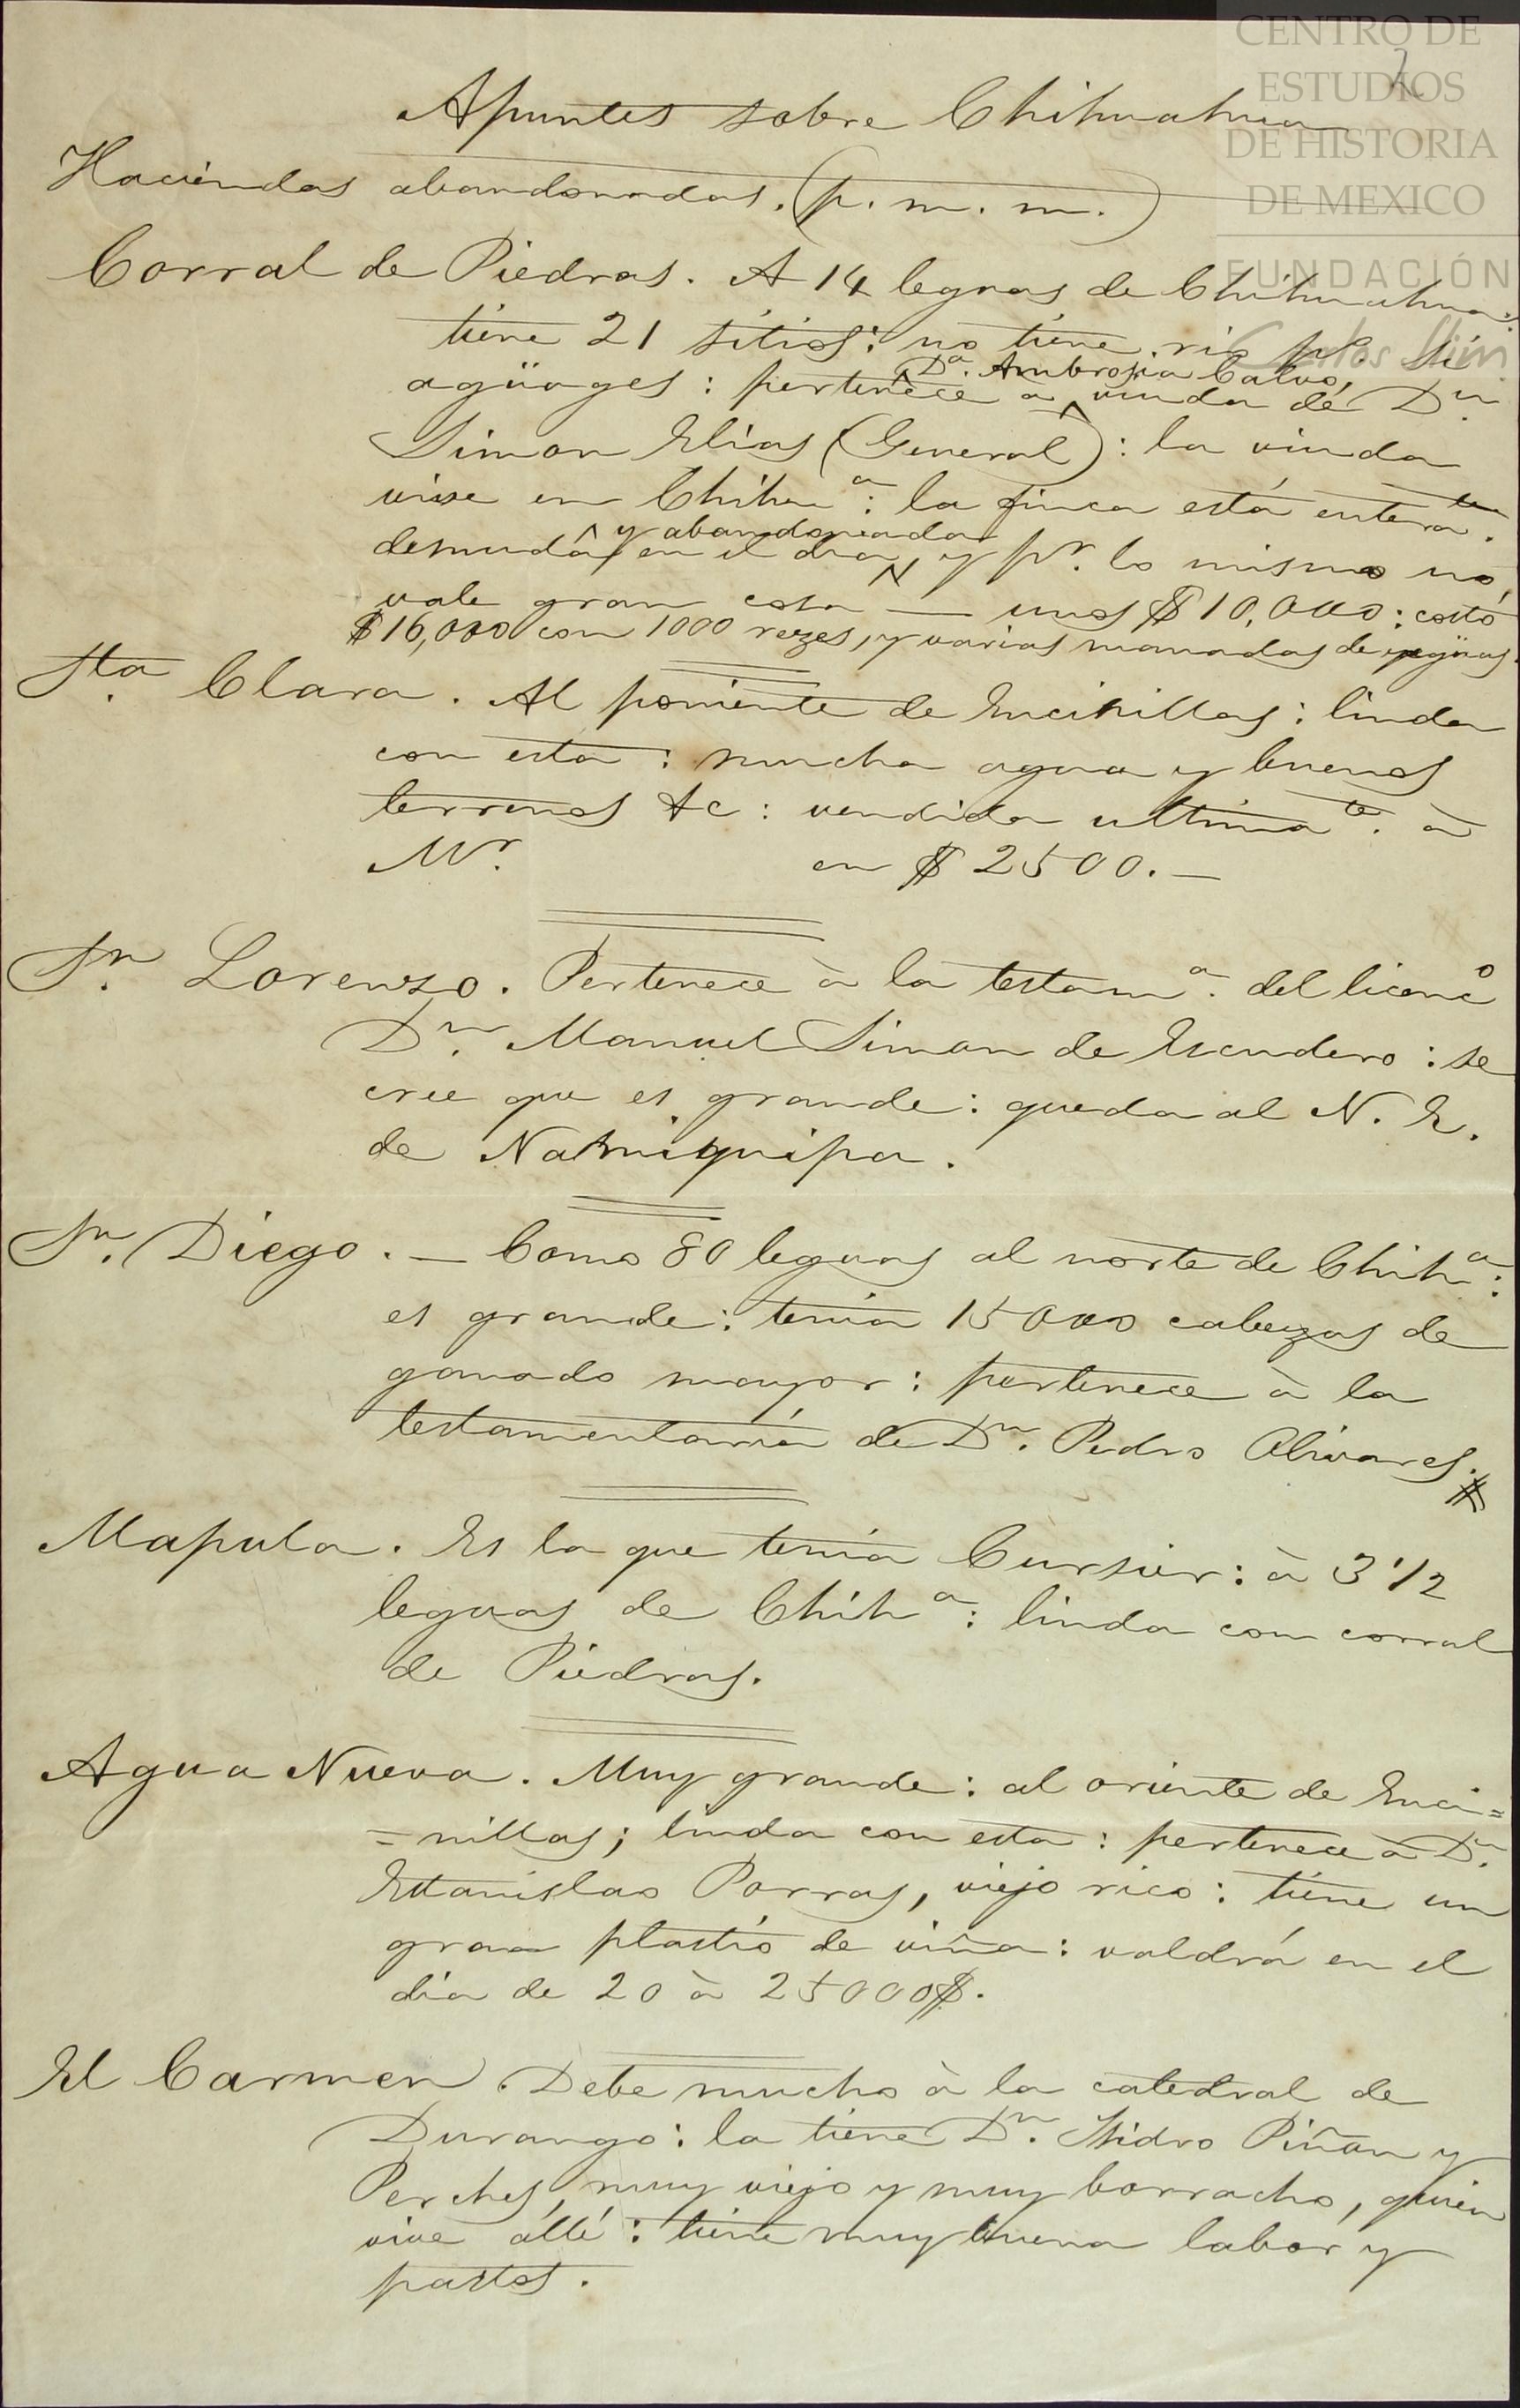 CENTRO DE
ESTUDIOS
DE HISTORIA
DE MEXICO
FUNDACIÓN
Carlos Slim
2
Apuntes sobre Chihuahua
Haciendas abandonadas. (p. m. m.)
Corral de Piedras. A 14 leguas de Chihuahua:
tiene 21 sitios: no tiene rio pº. si
agüages: pertenece à Dª. Ambrosia Calvo, viuda de Dn.
Simon Elias (General): la viuda
vive en Chihuª: la finca está enterate.
desnuda y abandonada en el dia, y pr. lo mismo no
vale gran cosa — unos $10,000: costó
$16,000 con 1000 rezes, y varias manadas de yeguas.
Sta. Clara. Al poniente de Encinillas: linda
con esta: mucha agua y buenos
terrenos &c: vendida ultimate. à
Mr. en $2500.—
Sn. Lorenzo. Pertenece à la testamª. del licencº
Dn. Manuel Simon de Escudero: se
cree que es grande: queda al N. E.
de Namiquipa.
Sn. Diego. — Como 80 leguas al norte de Chihª:
es grande: tenia 15000 cabezas de
ganado mayor: pertenece à la
testamentaría de Dn. Pedro Olivares.#
Mapula. Es la que tenía Cursier: à 3 1/2
leguas de Chihª: linda con corral
de Piedras.
Agua Nueva. Muy grande: al oriente de Enci=
=nillas; linda con esta: pertenece a Dn.
Estanislao Porras, viejo rico: tiene un
gran plantío de viña: valdrá en el
día de 20 à 25000$.
El Carmen. Debe mucho à la catedral de
Durango: la tiene Dn. Isidro Piñon y
Perches, muy viejo y muy borracho, quien
vive allí: tiene muy buena labor y
pastos.